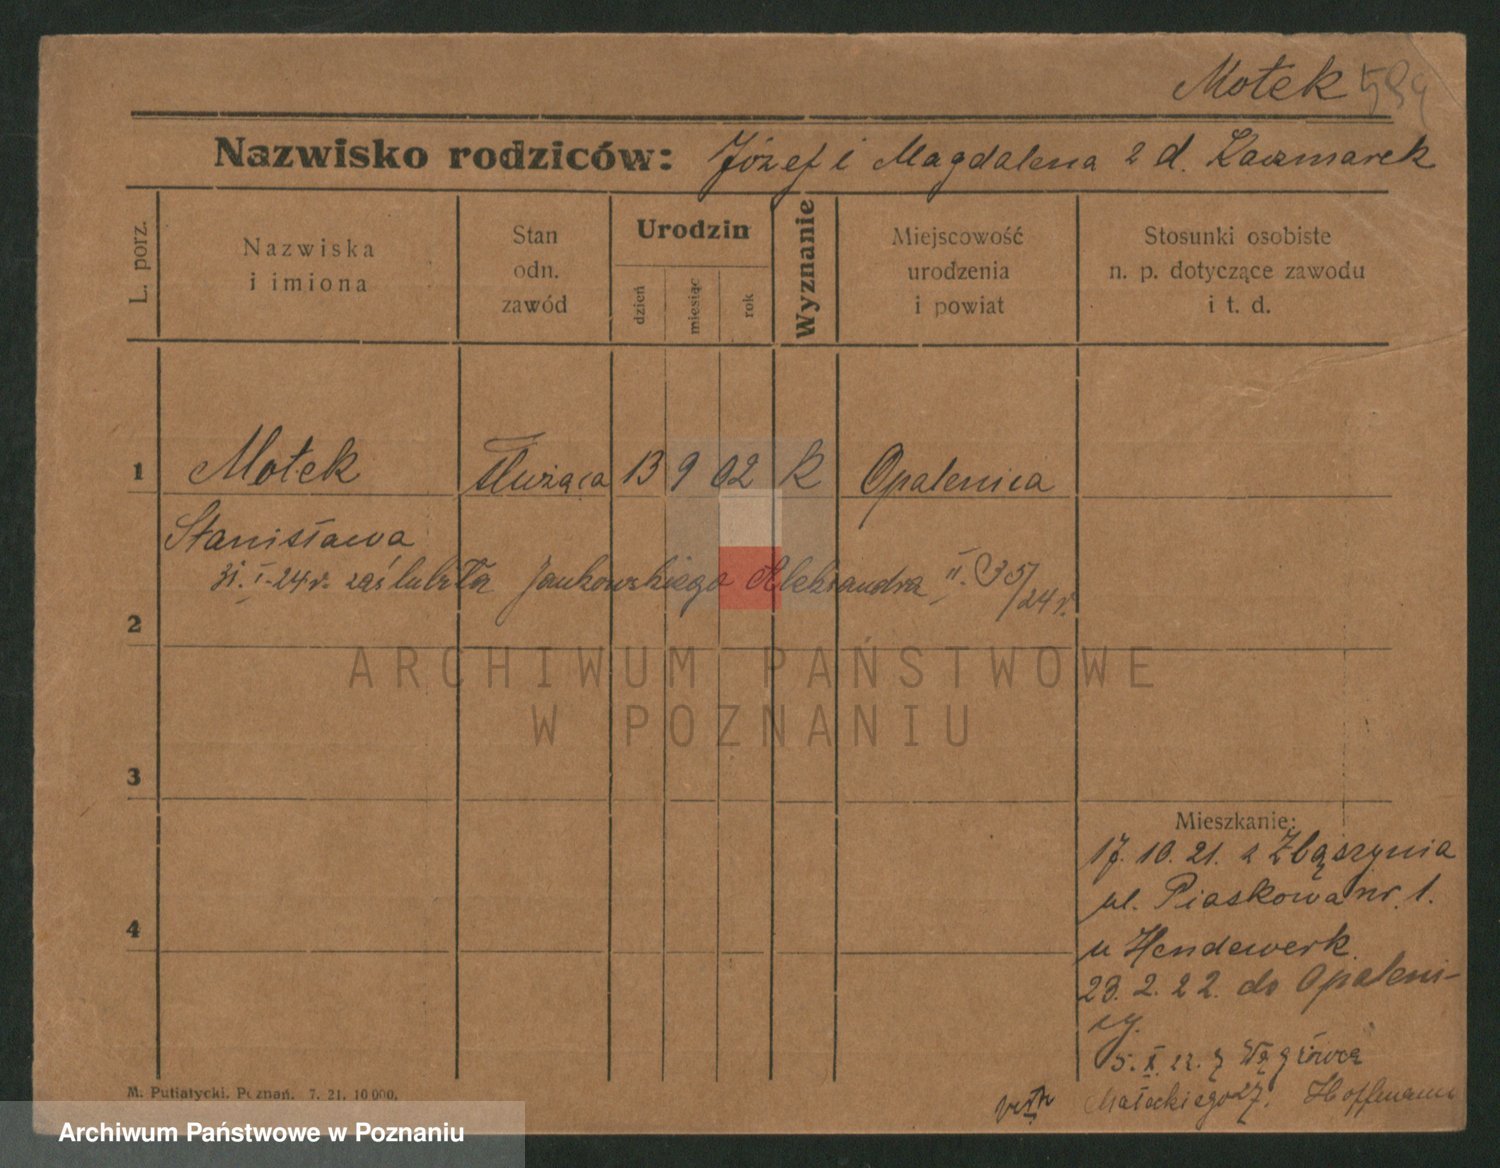 Mołek 594
Nazwisko rodziców: Józef i Magdalena z d. Kaczmarek
L. porz.
Nazwiska
i imiona
Stan
odn.
zawód
Urodzin
dzień
miesiąc
rok
Wyznanie
Miejscowość
urodzenia
i powiat
Stosunki osobiste
n. p. dotyczące zawodu
i t. d.
1 Mołek Służąca 13 9 02 k Opalenica
Stanisława
31. I. 24 r. zaślubiła Jankowskiego Aleksandra II. 35/24 r.
2
ARCHIWUM PAŃSTWOWE
W POZNANIU
3
Mieszkanie:
17. 10. 21. z Zbąszynia
ul. Piaskowa nr. 1.
4
u Hendewerk.
23. 2. 22. do Opaleni-
cy.
5. X. 22. z
Małeckiego 27. Hoffmann
M. Putiatycki, Poznań. 7. 21. 10 000.
Archiwum Państwowe w Poznaniu